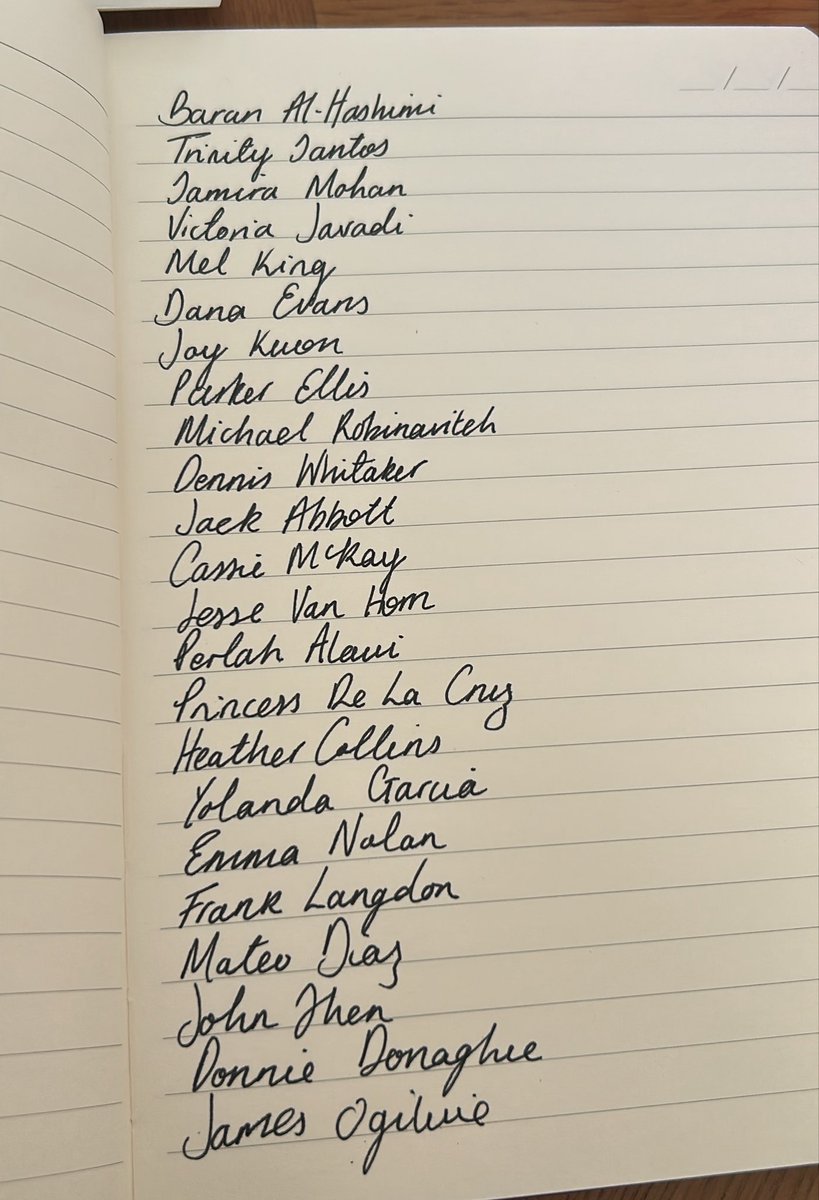 Baran Al-Hashimi
Trinity Santos
Samira Mohan
Victoria Javadi
Mel King
Dana Evans
Joy Kwon
Parker Ellis
Michael Robinavitch
Dennis Whitaker
Jack Abbott
Cassie McKay
Jesse Van Horn
Perlah Alawi
Princess De La Cruz
Heather Collins
Yolanda Garcia
Emma Nolan
Frank Langdon
Mateo Diaz
John Shen
Donnie Donaghue
James Ogilvie